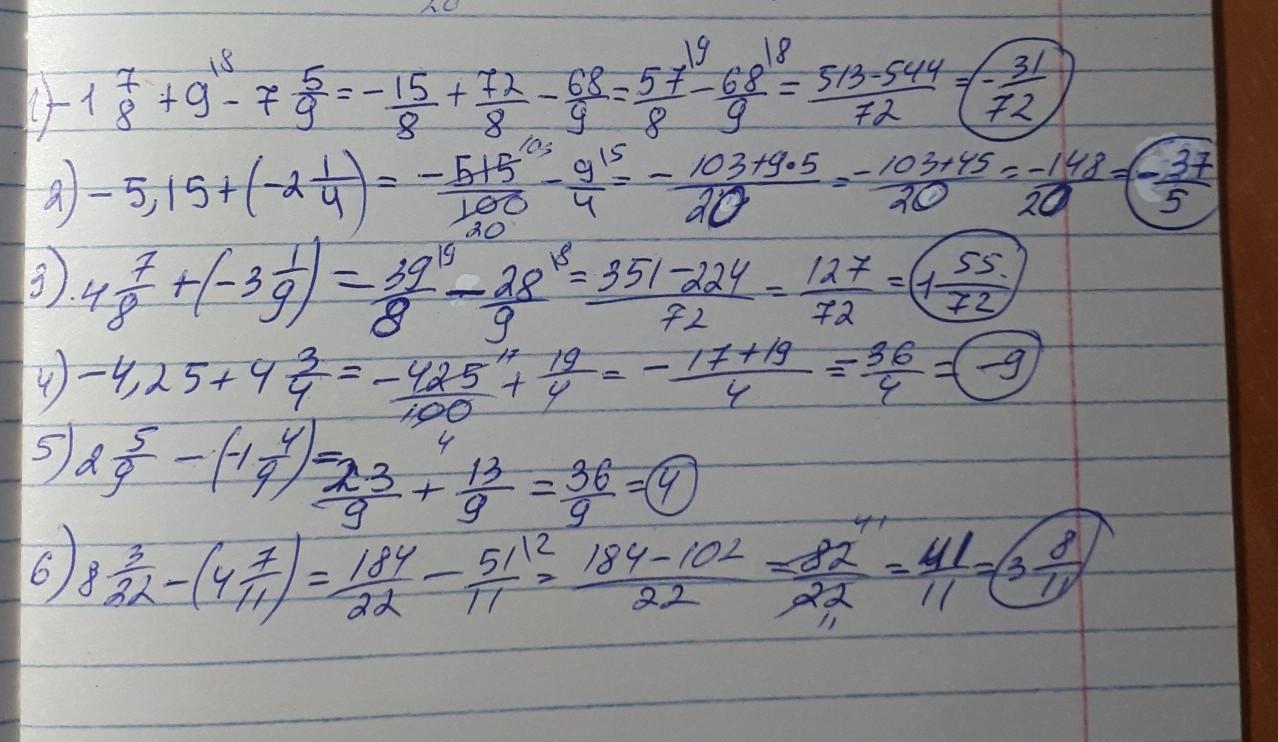 20
1) -1 7/8 + 9\8 - 7 5/9 = -15/8 + 72/8 - 68/9 = 57/8\9 - 68/9\8 = 513-544/72 = -31/72
2) -5,15 + (-2 1/4) = -515 103/100 20 - 9/4\5 = -103+9·5/20 = -103+45/20 = -148/20 = -37/5
3) 4 7/8 + (-3 1/9) = 39/8\9 - 28/9\8 = 351-224/72 = 127/72 = 1 55/72
4) -4,25 + 4 3/4 = -425 17/100 4 + 19/4 = -17+19/4 = -36/4 = -9
5) 2 5/9 - (-1 4/9) = 23/9 + 13/9 = 36/9 = 4
6) 8 3/22 - (4 7/11) = 184/22 - 51/11\2 = 184-102/22 = 82 41/22 11 = 41/11 = 3 8/11